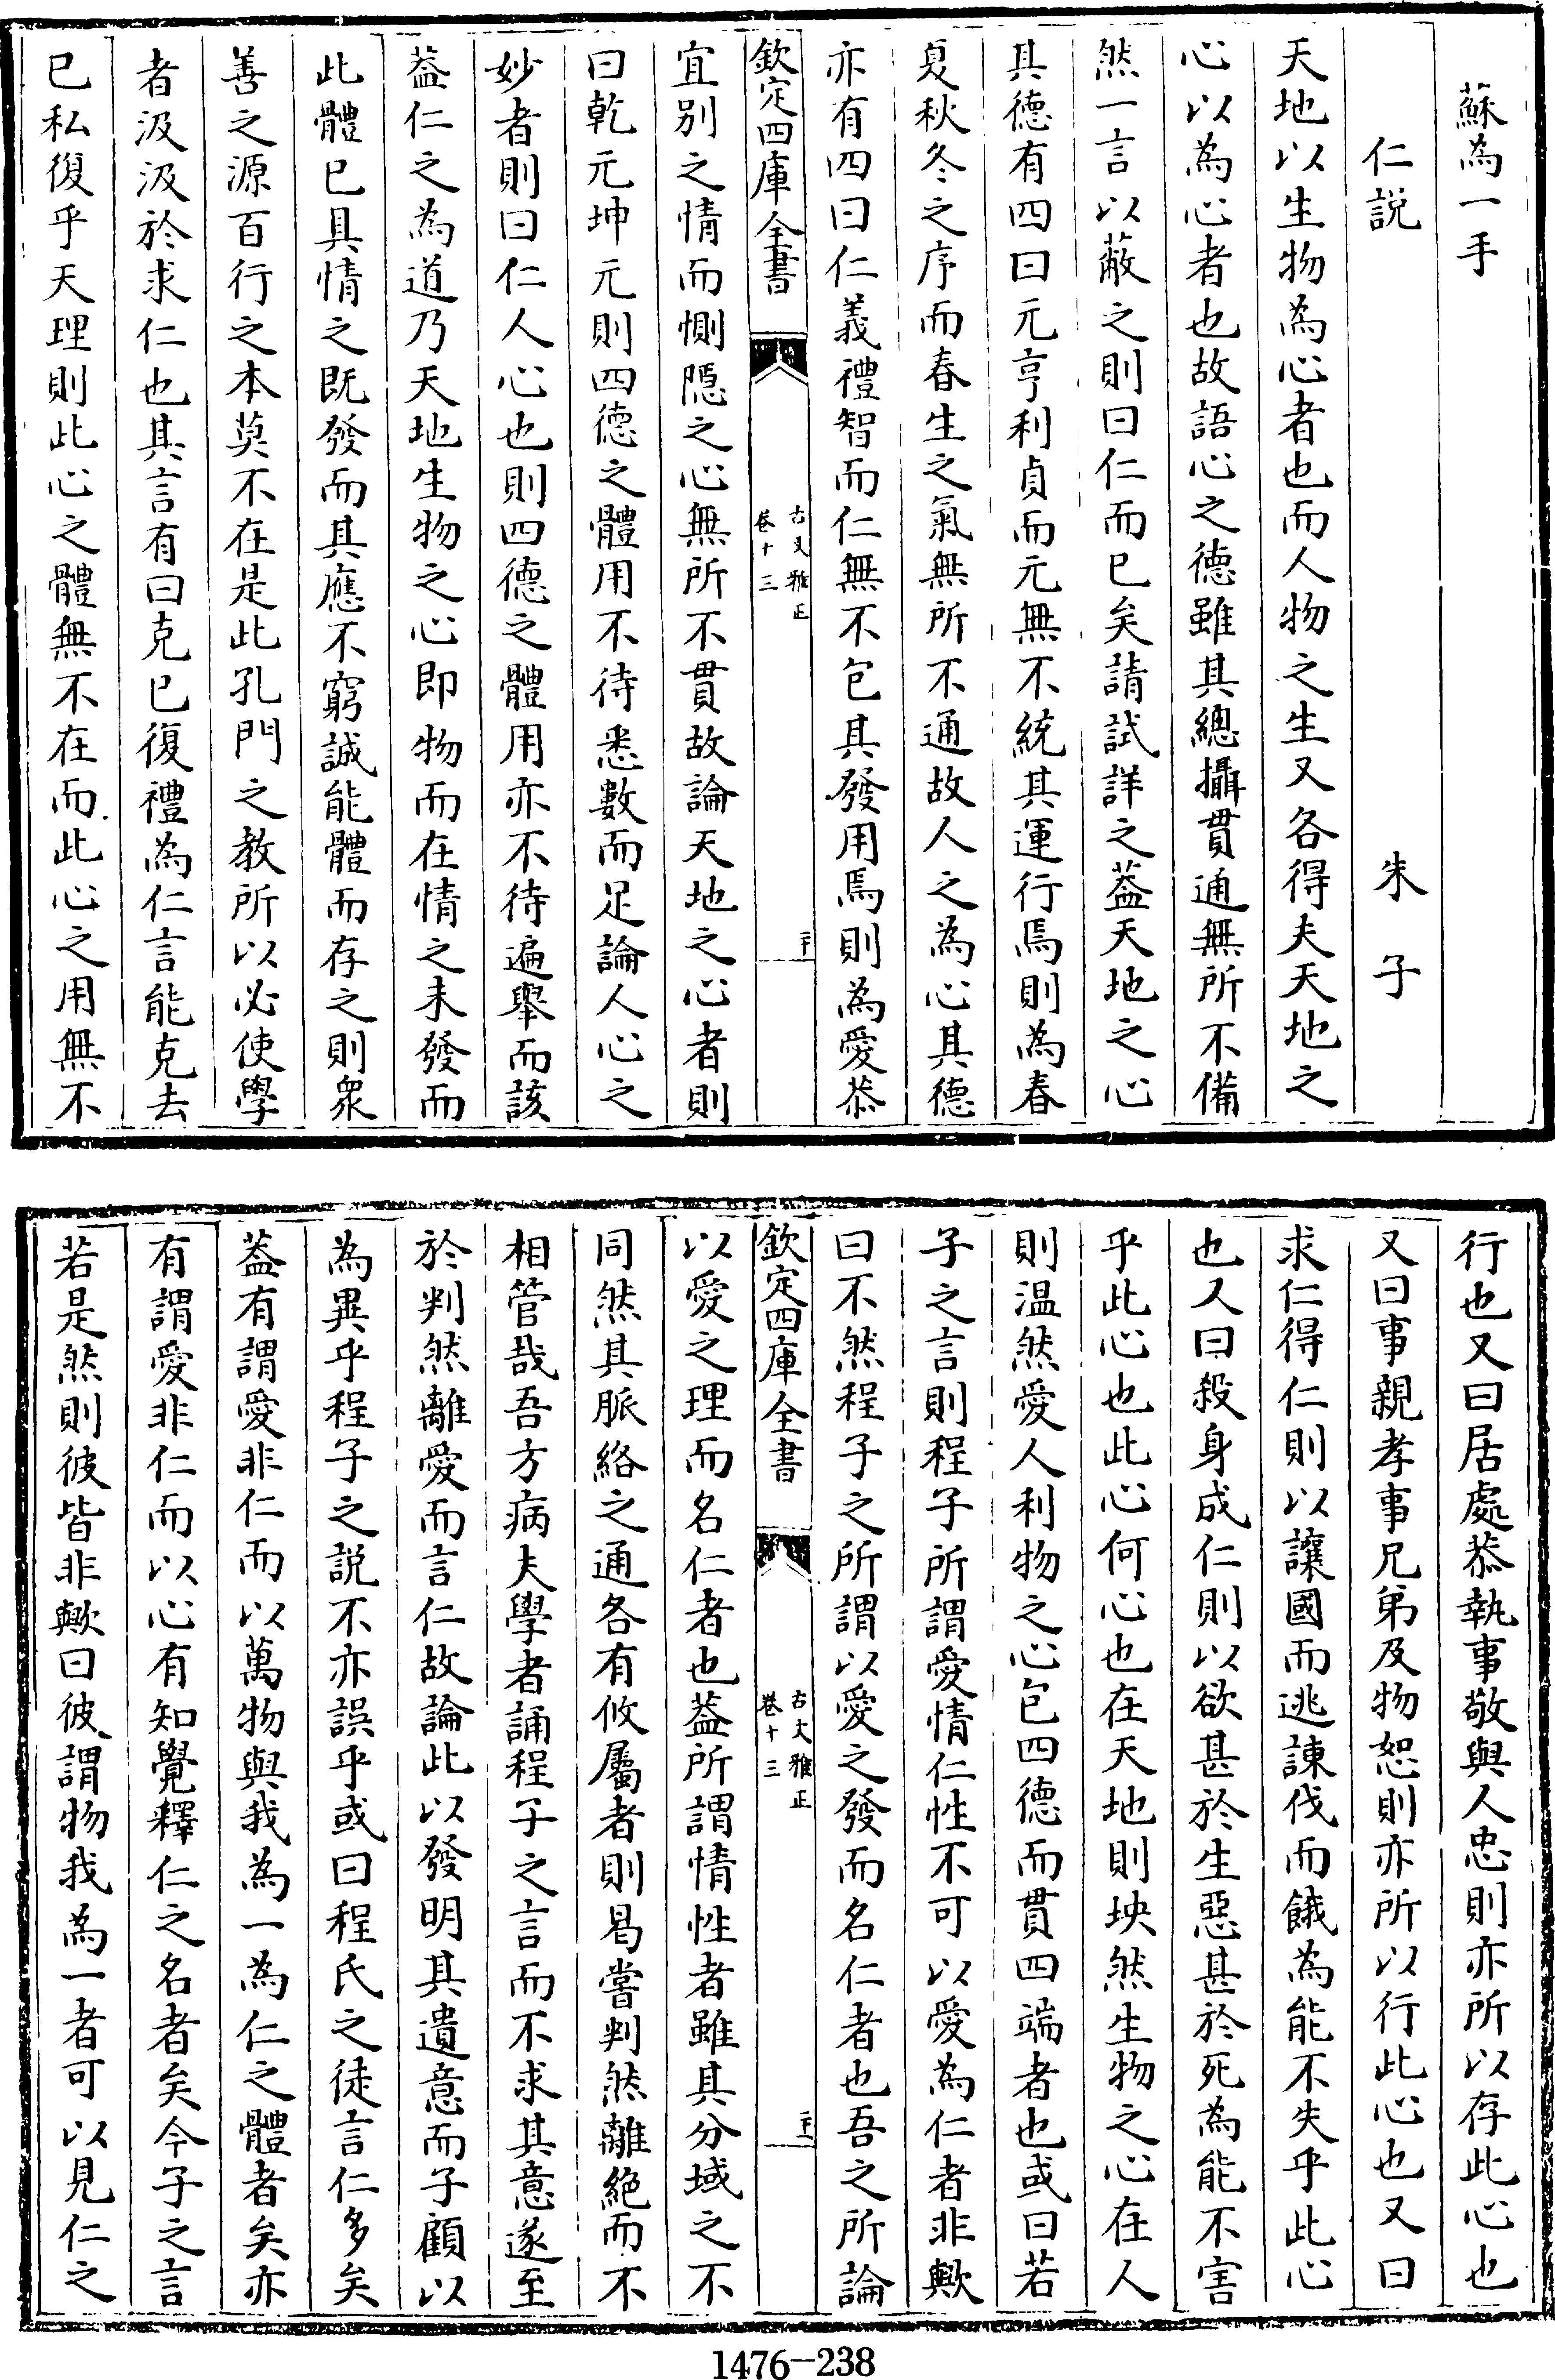 蘇為一手
仁説 朱子
天地以生物為心者也而人物之生又各得夫天地之
心以為心者也故語心之德雖其總攝貫通無所不備
然一言以蔽之則曰仁而已矣請試詳之葢天地之心
其德有四曰元亨利貞而元無不統其運行焉則為春
夏秋冬之序而春生之氣無所不通故人之為心其德
亦有四曰仁義禮智而仁無不包其發用焉則為愛恭
欽定四庫全書
古文雅正
卷十三
二十
宜别之情而惻隠之心無所不貫故論天地之心者則
曰乾元坤元則四德之體用不待悉數而足論人心之
妙者則曰仁人心也則四德之體用亦不待遍舉而該
葢仁之為道乃天地生物之心即物而在情之未發而
此體已具情之既發而其應不窮誠能體而存之則衆
善之源百行之本莫不在是此孔門之教所以必使學
者汲汲於求仁也其言有曰克已復禮為仁言能克去
已私復乎天理則此心之體無不在而此心之用無不
行也又曰居處恭執事敬與人忠則亦所以存此心也
又曰事親孝事兄弟及物恕則亦所以行此心也又曰
求仁得仁則以讓國而逃諫伐而餓為能不失乎此心
也又曰殺身成仁則以欲甚於生惡甚於死為能不害
乎此心也此心何心也在天地則坱然生物之心在人
則温然愛人利物之心包四德而貫四端者也或曰若
子之言則程子所謂愛情仁性不可以愛為仁者非歟
曰不然程子之所謂以愛之發而名仁者也吾之所論
欽定四庫全書
古文雅正
卷十三
二十一
以愛之理而名仁者也葢所謂情性者雖其分域之不
同然其脈絡之通各有攸屬者則曷嘗判然離絶而不
相管哉吾方病夫學者誦程子之言而不求其意遂至
於判然離愛而言仁故論此以發明其遺意而子顧以
為異乎程子之説不亦誤乎或曰程氏之徒言仁多矣
葢有謂愛非仁而以萬物與我為一為仁之體者矣亦
有謂愛非仁而以心有知覺釋仁之名者矣今子之言
若是然則彼皆非歟曰彼謂物我為一者可以見仁之
1476-238